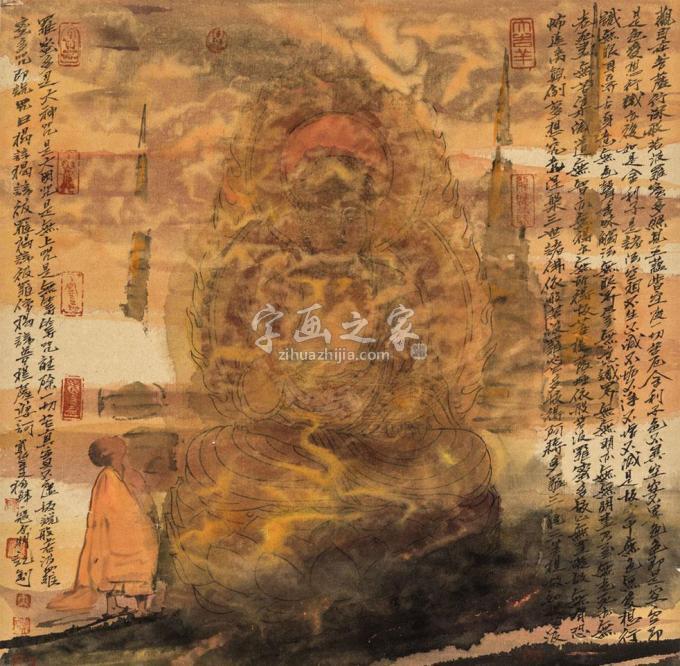 觀自在菩薩行深般若波羅蜜多時照見五蘊皆空度一切苦厄舍利子色不異空空不異色色即是空空即
是色受想行識亦復如是舍利子是諸法空相不生不滅不垢不淨不增不減是故空中無色無受想行
識無眼耳鼻舌身意無色聲香味觸法無眼界乃至無意識界無無明亦無無明盡乃至無老死亦無
老死盡無苦集滅道無智亦無得以無所得故菩提薩埵依般若波羅蜜多故心無罣礙無罣礙故無有恐
怖遠離顛倒夢想究竟涅槃三世諸佛依般若波羅蜜多故得阿耨多羅三藐三菩提故知般若波
羅蜜多是大神咒是大明咒是無上咒是無等等咒能除一切苦真實不虛故說般若波羅
蜜多咒即說咒曰揭諦揭諦波羅揭諦波羅僧揭諦菩提薩婆訶
字画之家
zihuazhijia.com